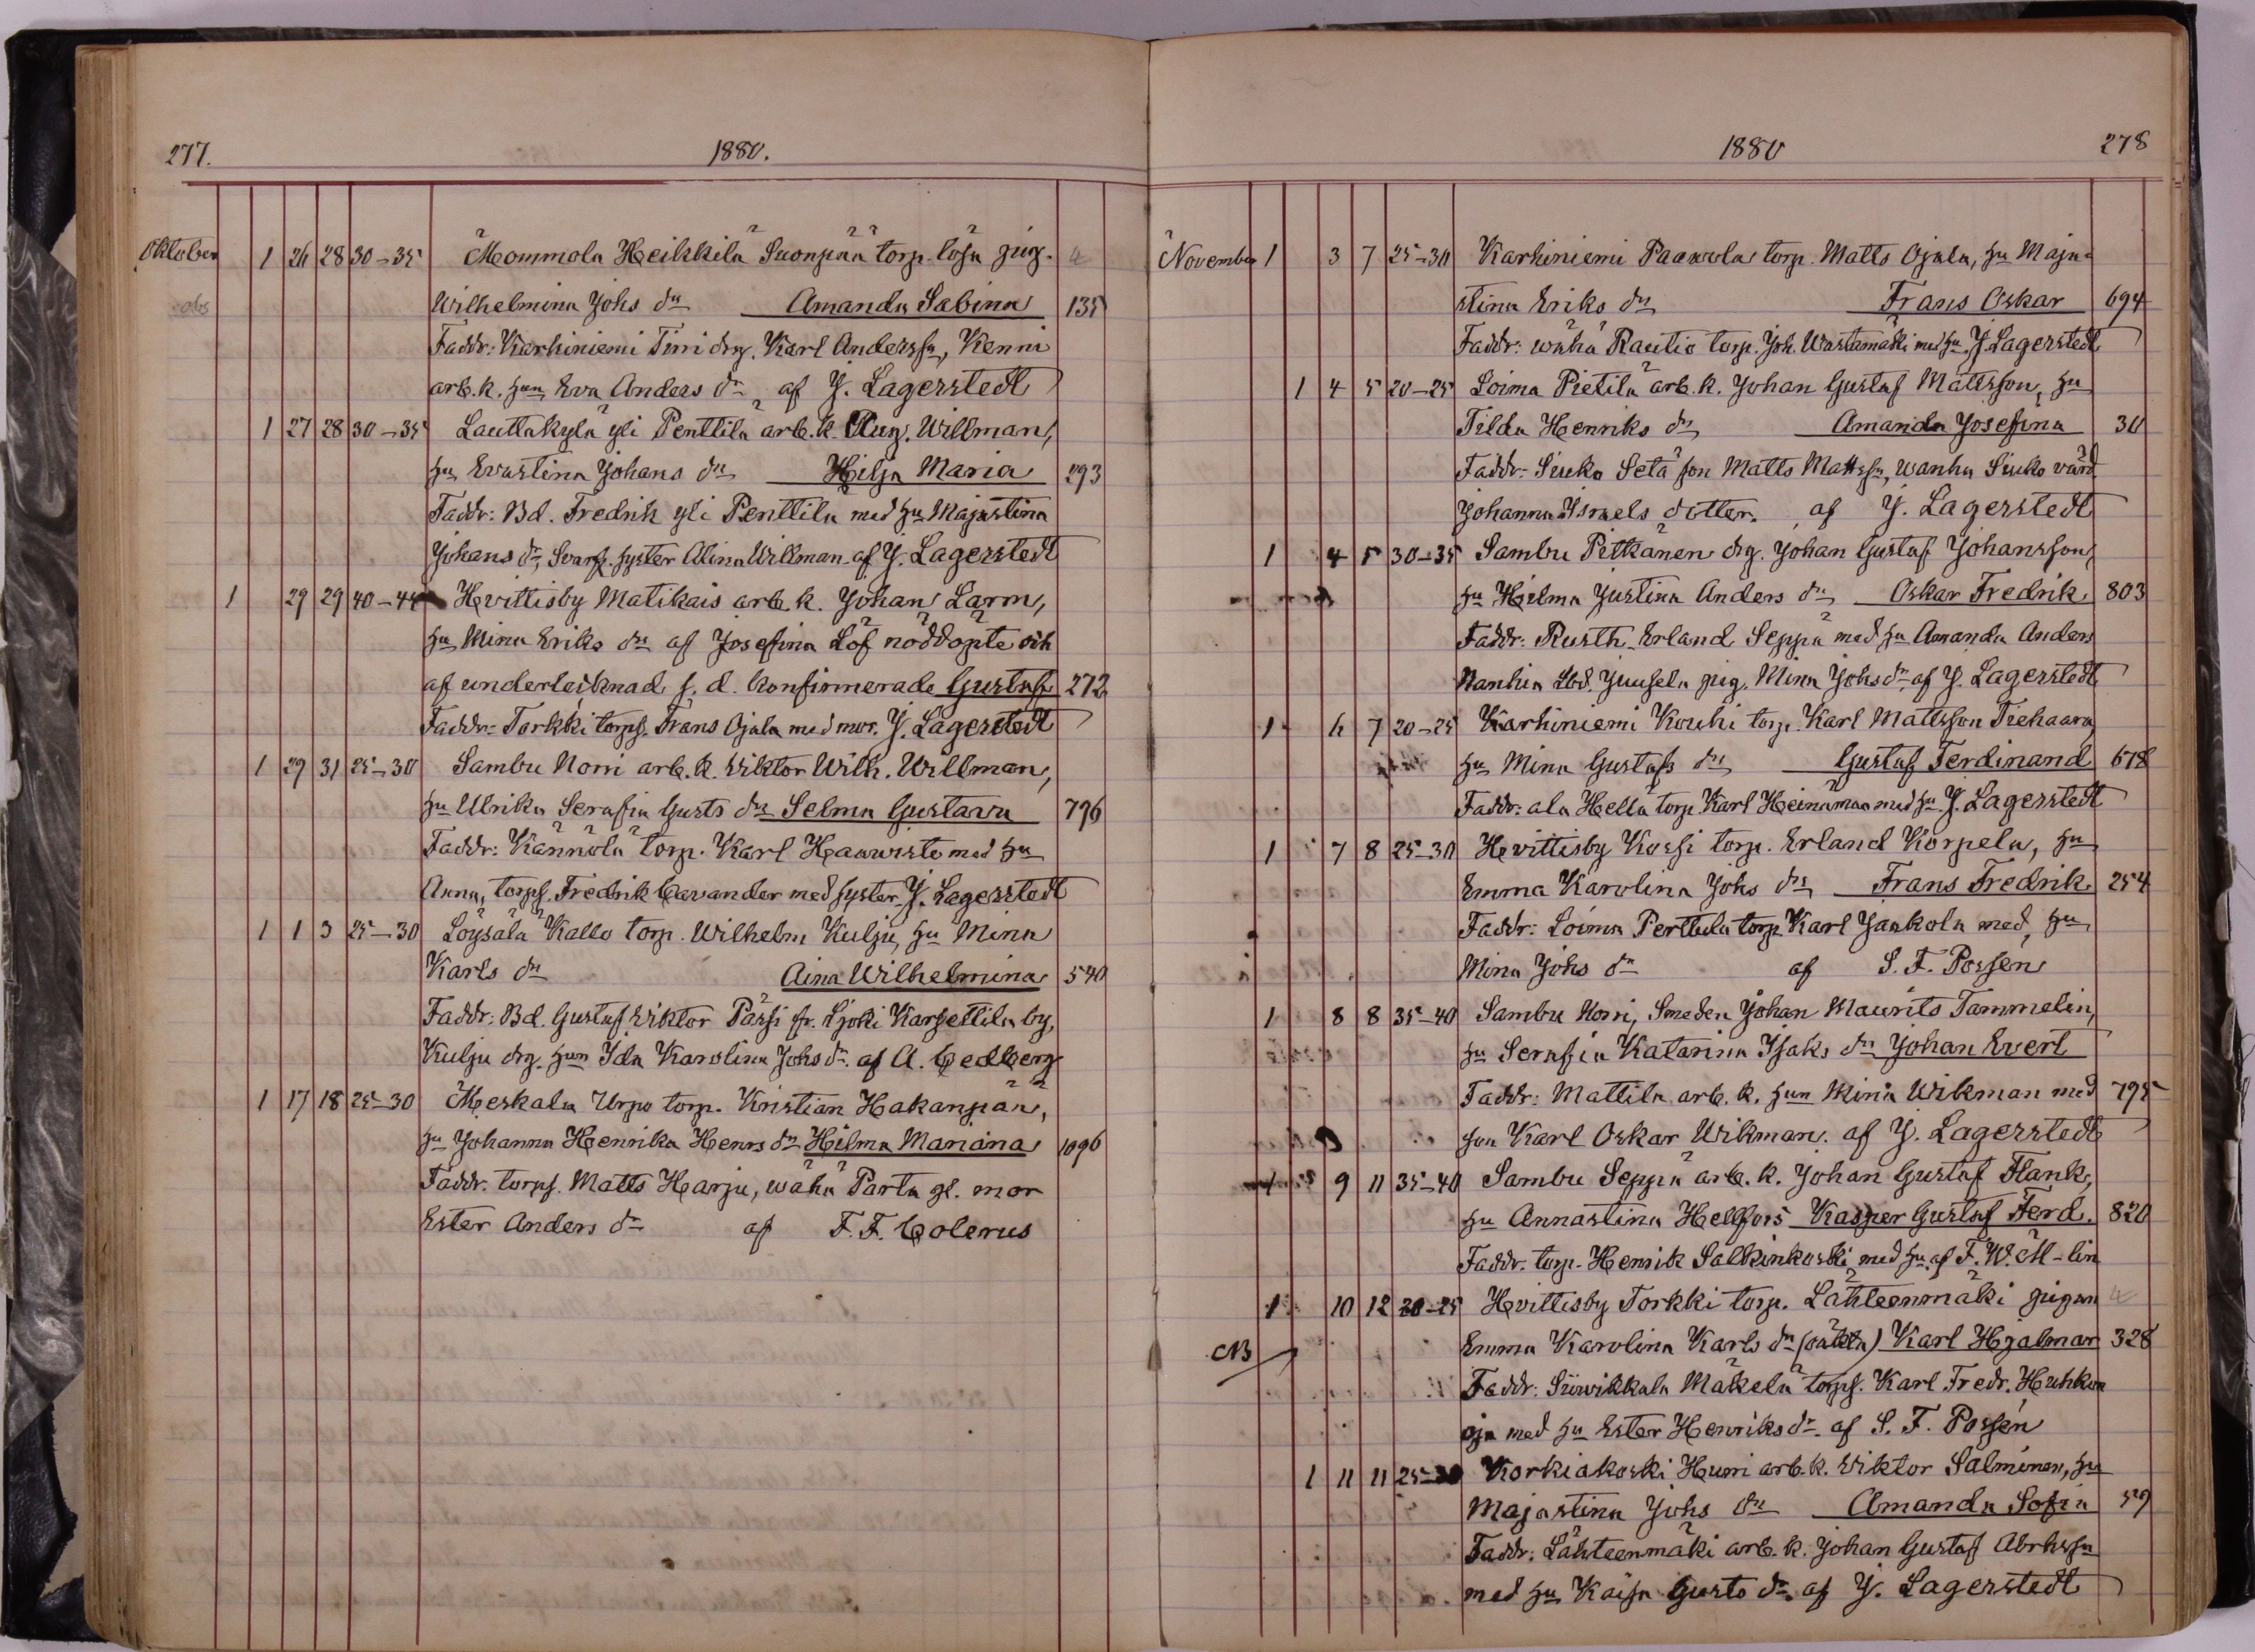 277. 1880.
Oktober 1 26 28 30–35 Mommola Heikkilä Suonpää torp. lösa pig. 4
obs Wilhelmina Johs dr Amanda Sabina 135
Faddr: Karhiniemi Timi drg. Karl Anderssn, Kenni
arb. k. hu Eva Anders dr af J. Lagerstedt
1 27 28 30–35 Lauttakylä yli Penttilä arb. k. Aug. Willman,
hu Evastina Johans dr Hilja Maria 293
Faddr: Bd. Fredrik yli Penttilä med hu Majastina
Johans dr, Svarf. syster Alina Willman af J. Lagerstedt
1 29 29 40–44 Hvittisby Matikais arb. k. Johan Larm,
hu Mina Eriks dr af Josefina Löf nöddöpte och
af undertecknad s. d. konfirmerade Gustaf 272
Faddr: Torkki torps. Frans Ojala med mor. J. Lagerstedt
1 29 31 25–30 Sambu Norri arb. k. Viktor Wilh. Willman,
hu Ulrika Serafia Gusts dr Selma Gustava 796
Faddr: Kännölä torp. Karl Haavisto med hu
Anna, torps. Fredrik Cavander med syster J. Lagerstedt
1 1 3 25–30 Löysälä Kallo torp. Wilhelm Kulju, hu Mina
Karls dr Aina Wilhelmina 540
Faddr: Bd. Gustaf Viktor Pässi fr. Ljoki Karhettila by,
Kulju drg. hun Ida Karolina Johs dr. af A. Cedberg
1 17 18 25–30 Meskala Urpo torp. Kristian Hakanpää,
hu Johanna Henrika Henrs dr Hilma Mariana 1096
Faddr. torps. Matts Harju, wähä Parta gl. mor
Ester Anders dr af F. F. Colerus
1880 278
November 1 3 7 25–30 Karhiniemi Paavola torp. Matts Ojala, hu Maja
stina Eriks dr Frans Oskar 694
Faddr: wähä Rautio torp. Joh. Wastamäki med hu. J. Lagerstedt
1 4 5 20–25 Loima Pietilä arb. k. Johan Gustaf Mattsson, hu
Tilda Henriks dr Amanda Josefina 30
Faddr: Siuko Setä son Matts Mattssn, wanha Siuko värd
Johanna Israels dotter. af J. Lagerstedt
1 4 5 30–35 Sambu Pitkänen drg. Johan Gustaf Johansson,
hu Hilma Justina Anders dr Oskar Fredrik 803
Faddr: Rusth. Erland Seppä med hu Amanda Anders
Nanhia Lbd. Juusela pig. Mina Johs dr. af J. Lagerstedt
1 6 7 20–25 Karhiniemi Kouhi torp. Karl Mattsson Tiehaara
hu Mina Gustafs dr Gustaf Ferdinand 678
Faddr: ala Hella torp Karl Heinämaa med hu J. Lagerstedt
1 7 8 25–30 Hvittisby Kossi torp. Erland Korpela, hu
Emma Karolina Johs dr Frans Fredrik 254
Faddr: Loima Perttula torp. Karl Jaakola med hu
Mina Johs dr af S. F. Possen
1 8 8 35–40 Sambu Norri, Smeden Johan Maurits Tammelin,
hu Serafia Katarina Isaks dr Johan Evert
Faddr: Mattila arb. k. hun Mina Wikman med 795
son Karl Oskar Wikman. af J. Lagerstedt
1 9 11 35–40 Sambu Seppä arb. k. Johan Gustaf Flank,
hu Annastina Hellfors Kasper Gustaf Ferd. 820
Faddr. torp. Henrik Salkinkoski med hu af F. W. M–lin
1 10 12 20–25 Hvittisby Torkki torp. Lähteenmäki pigan 4
NB Emma Karolina Karls dr (oäkta) Karl Hjalmar 328
Faddr: Suvikkala Mäkelä torps. Karl Fredr. Huhkon
oja med hu Ester Henriks dr. af S. F. Possen
1 11 11 25–30 Korkiakoski Humi arb. k. Viktor Salminen, hu
Majastina Johs dr Amanda Sofia 59
Faddr: Lähteenmäki arb. k. Johan Gustaf Abrhssn
med hu Kaisa Gusts dr. af J. Lagerstedt